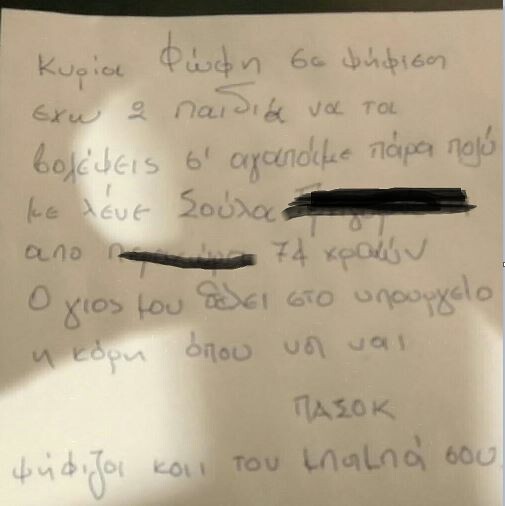 Κυρία Φώφη σε ψήφιση
εχω 2 παιδιά να τα
βολέψεις σ' αγαπάμε πάρα πολύ
με λένε Σούλα
απο 74 χρονών
Ο γιος μου θέλει στο υπουργείο
η κόρη όπου να ναι
ΠΑΣΟΚ
ψήφιζα και του μπαμπά σου